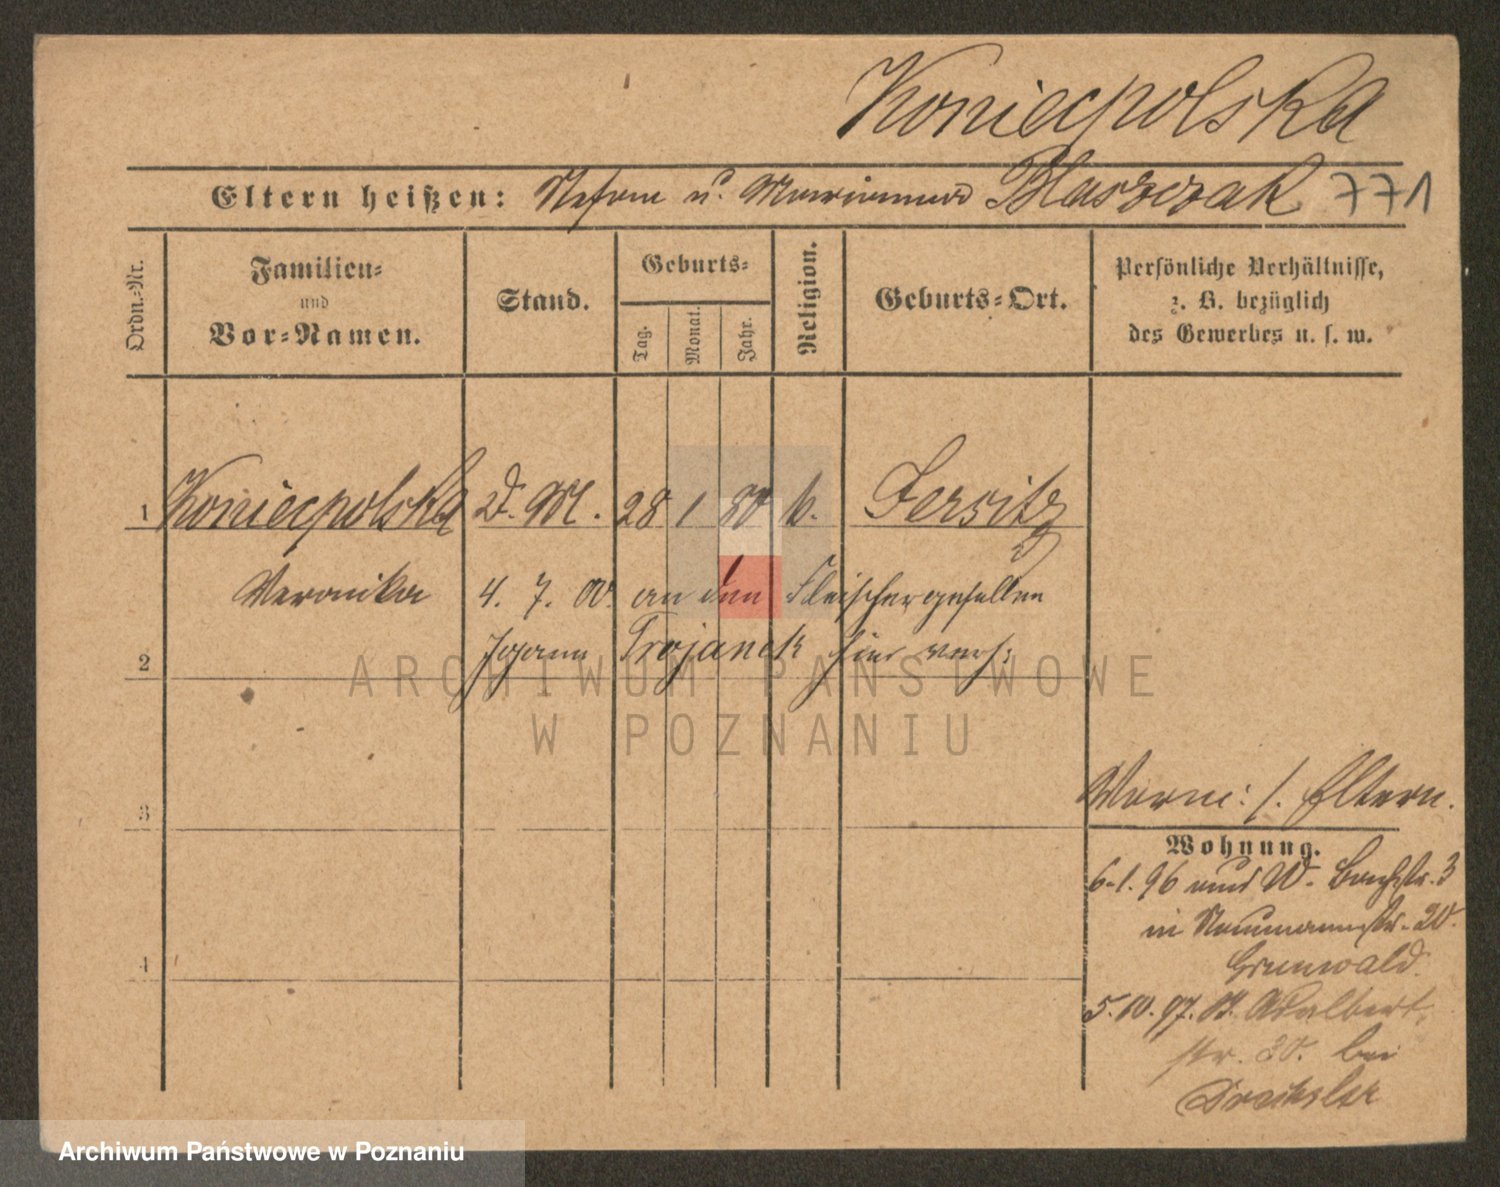 Koniecpolska
Eltern heißen: Stefan u. Marianna Blaszczak 771
Ordn.-Nr.
Familien-
und
Vor-Namen.
Stand.
Geburts-
Tag.
Monat.
Jahr.
Religion.
Geburts-Ort.
Persönliche Verhältnisse,
z. B. bezüglich
des Gewerbes u. s. w.
1 Koniecpolska D. M. 28 1 80 k. Jersitz
Veronika 4. 7. 00. an den Fleischergesellen
2 Johann Trojanek hier verh:
ARCHIWUM PAŃSTWOWE
W POZNANIU
3
Eltern.
Wohnung.
6.1.96 W. 3
in Naumannstr. 20.
Grunwald.
4
5.10.97. St. Adalbert
str. 30. bei
Drechsler
Archiwum Państwowe w Poznaniu